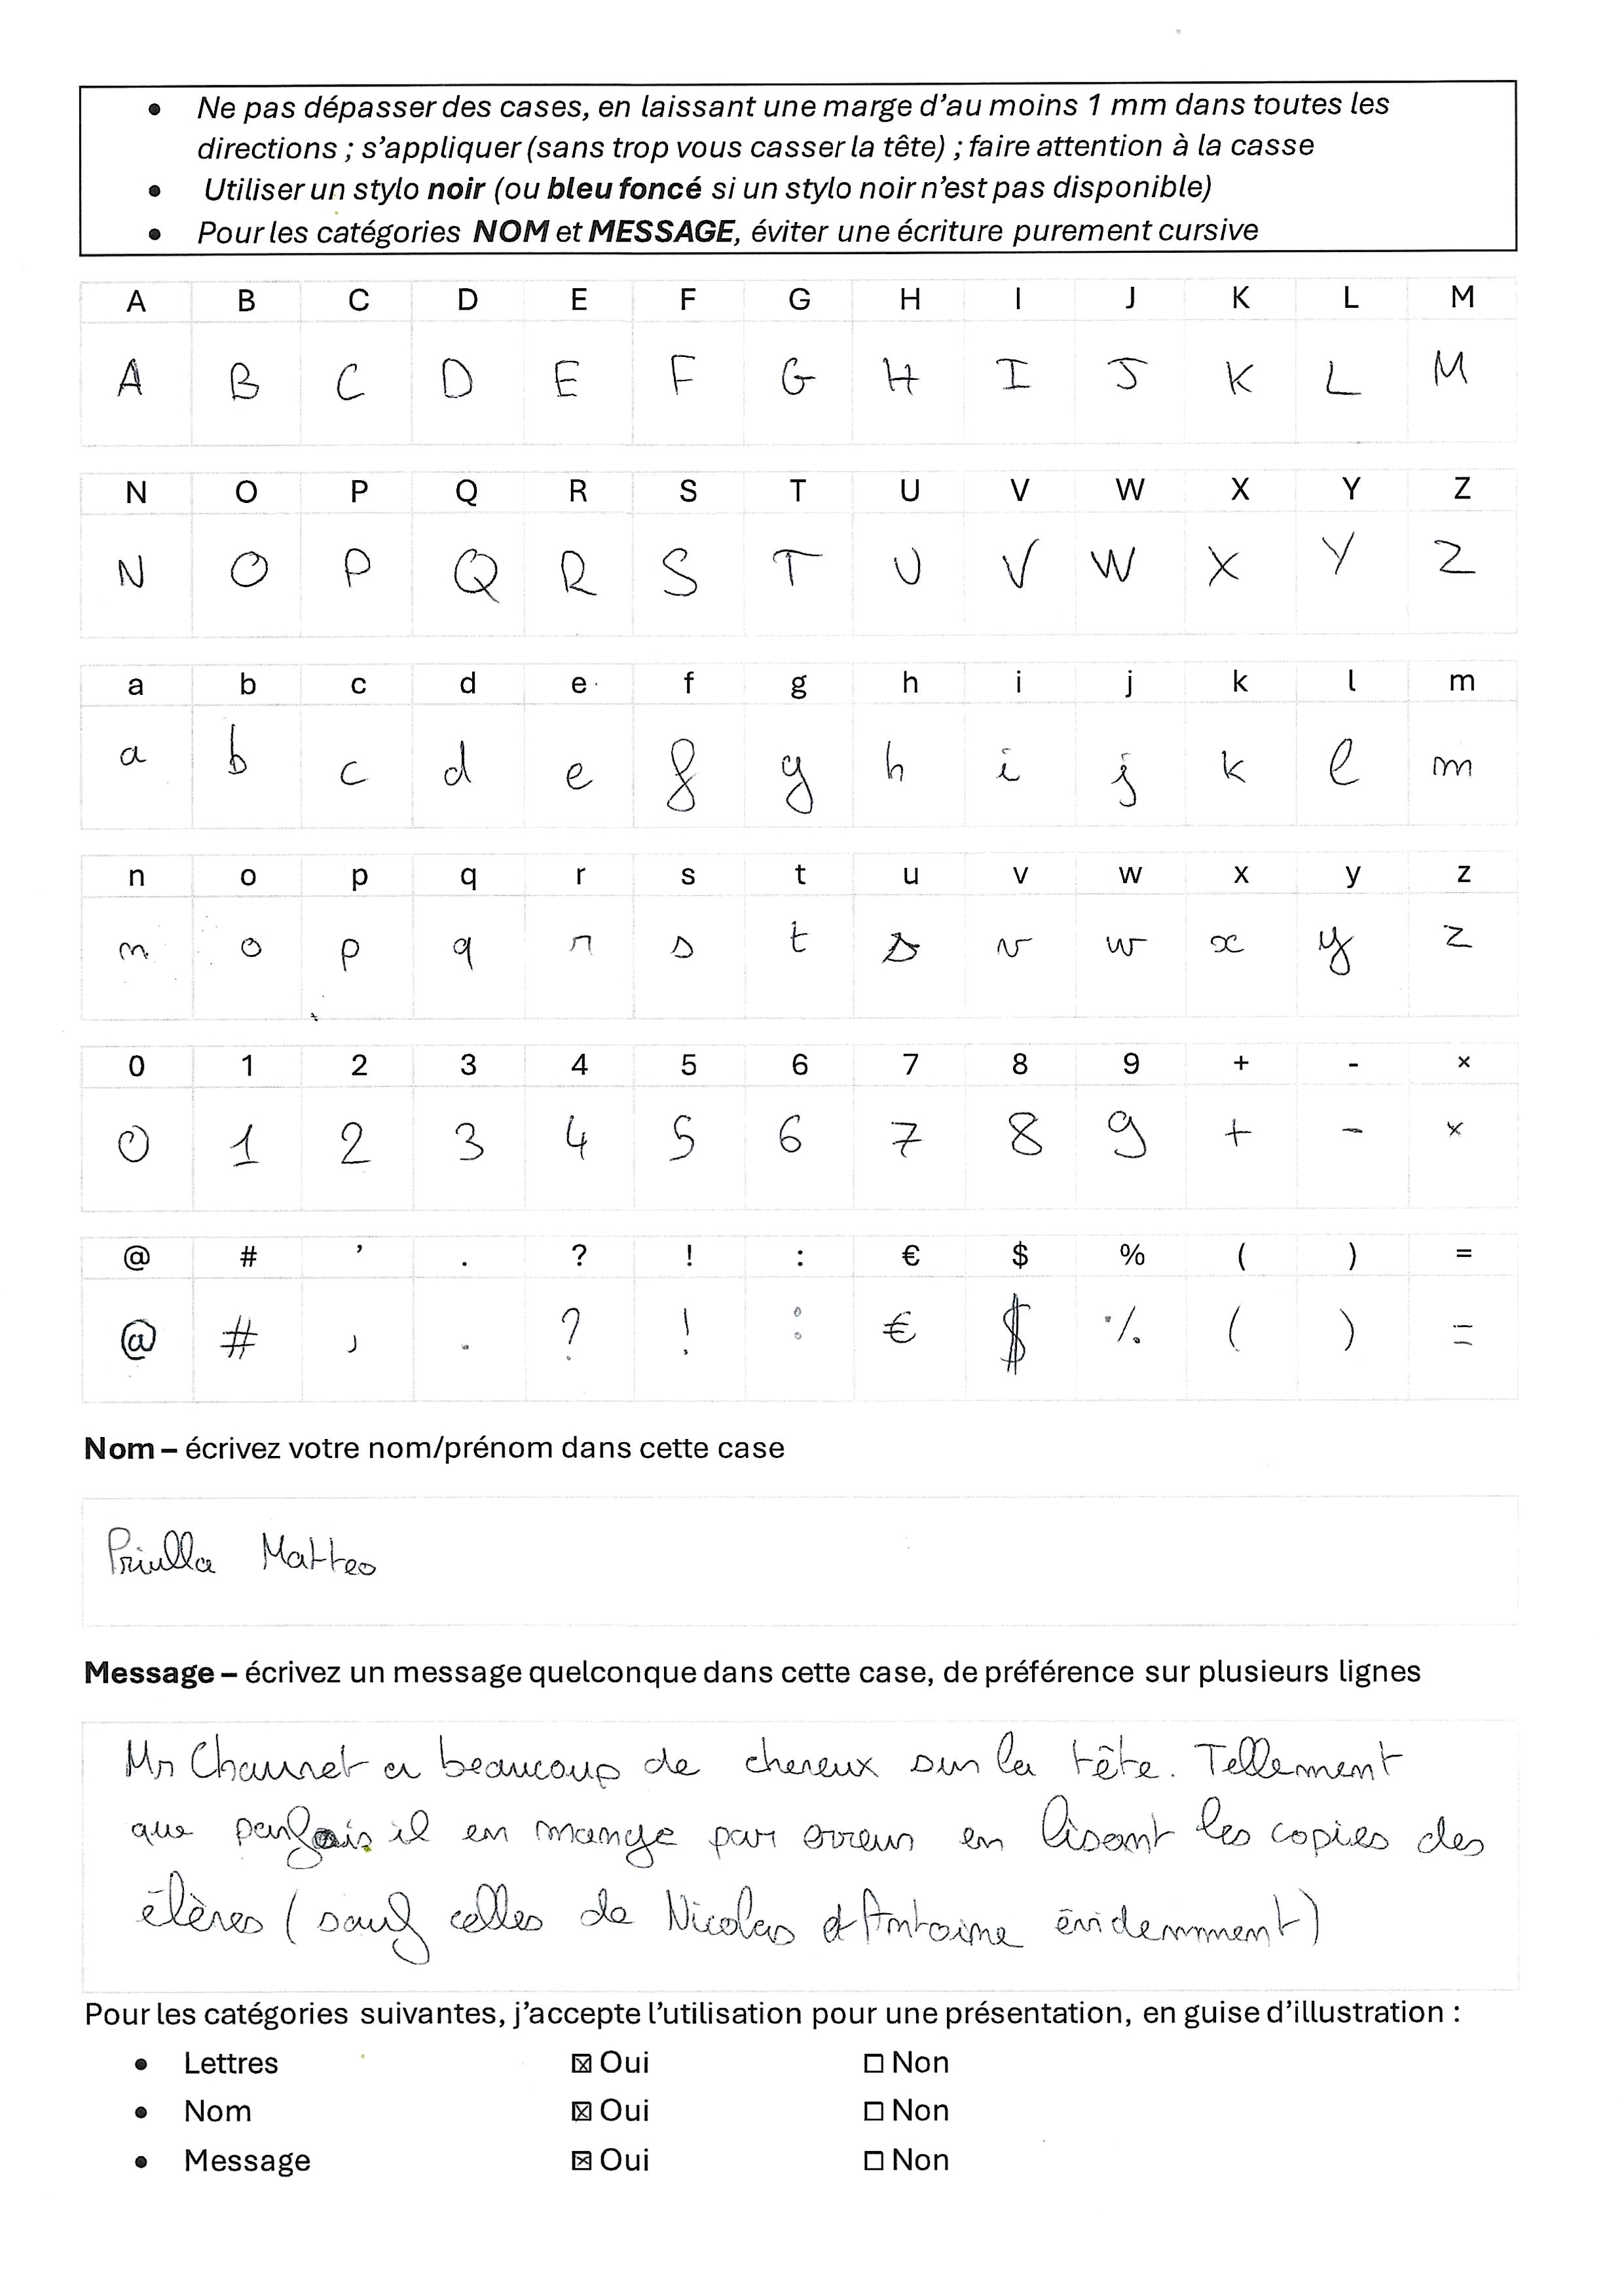 • Ne pas dépasser des cases, en laissant une marge d'au moins 1 mm dans toutes les
directions ; s'appliquer (sans trop vous casser la tête) ; faire attention à la casse
• Utiliser un stylo noir (ou bleu foncé si un stylo noir n'est pas disponible)
• Pour les catégories NOM et MESSAGE, éviter une écriture purement cursive
A B C D E F G H I J K L M
A B C D E F G H I J K L M
N O P Q R S T U V W X Y Z
N O P Q R S T U V W X Y Z
a b c d e f g h i j k l m
a b c d e f g h i j k l m
n o p q r s t u v w x y z
n o p q r s t v w x y z
0 1 2 3 4 5 6 7 8 9 + - ×
0 1 2 3 4 5 6 7 8 9 + - ×
@ # ’ . ? ! : € $ % ( ) =
@ # , . ? ! : € $ % ( ) =
Nom – écrivez votre nom/prénom dans cette case
Priulla Matteo
Message – écrivez un message quelconque dans cette case, de préférence sur plusieurs lignes
Mr a beaucoup de cheveux sur la tête. Tellement
que parfois il en mange par erreur en lisant les copies des
élèves (sauf celles de Nicolas et Antoine évidemment)
Pour les catégories suivantes, j'accepte l'utilisation pour une présentation, en guise d'illustration :
• Lettres ☒ Oui ☐ Non
• Nom ☒ Oui ☐ Non
• Message ☒ Oui ☐ Non